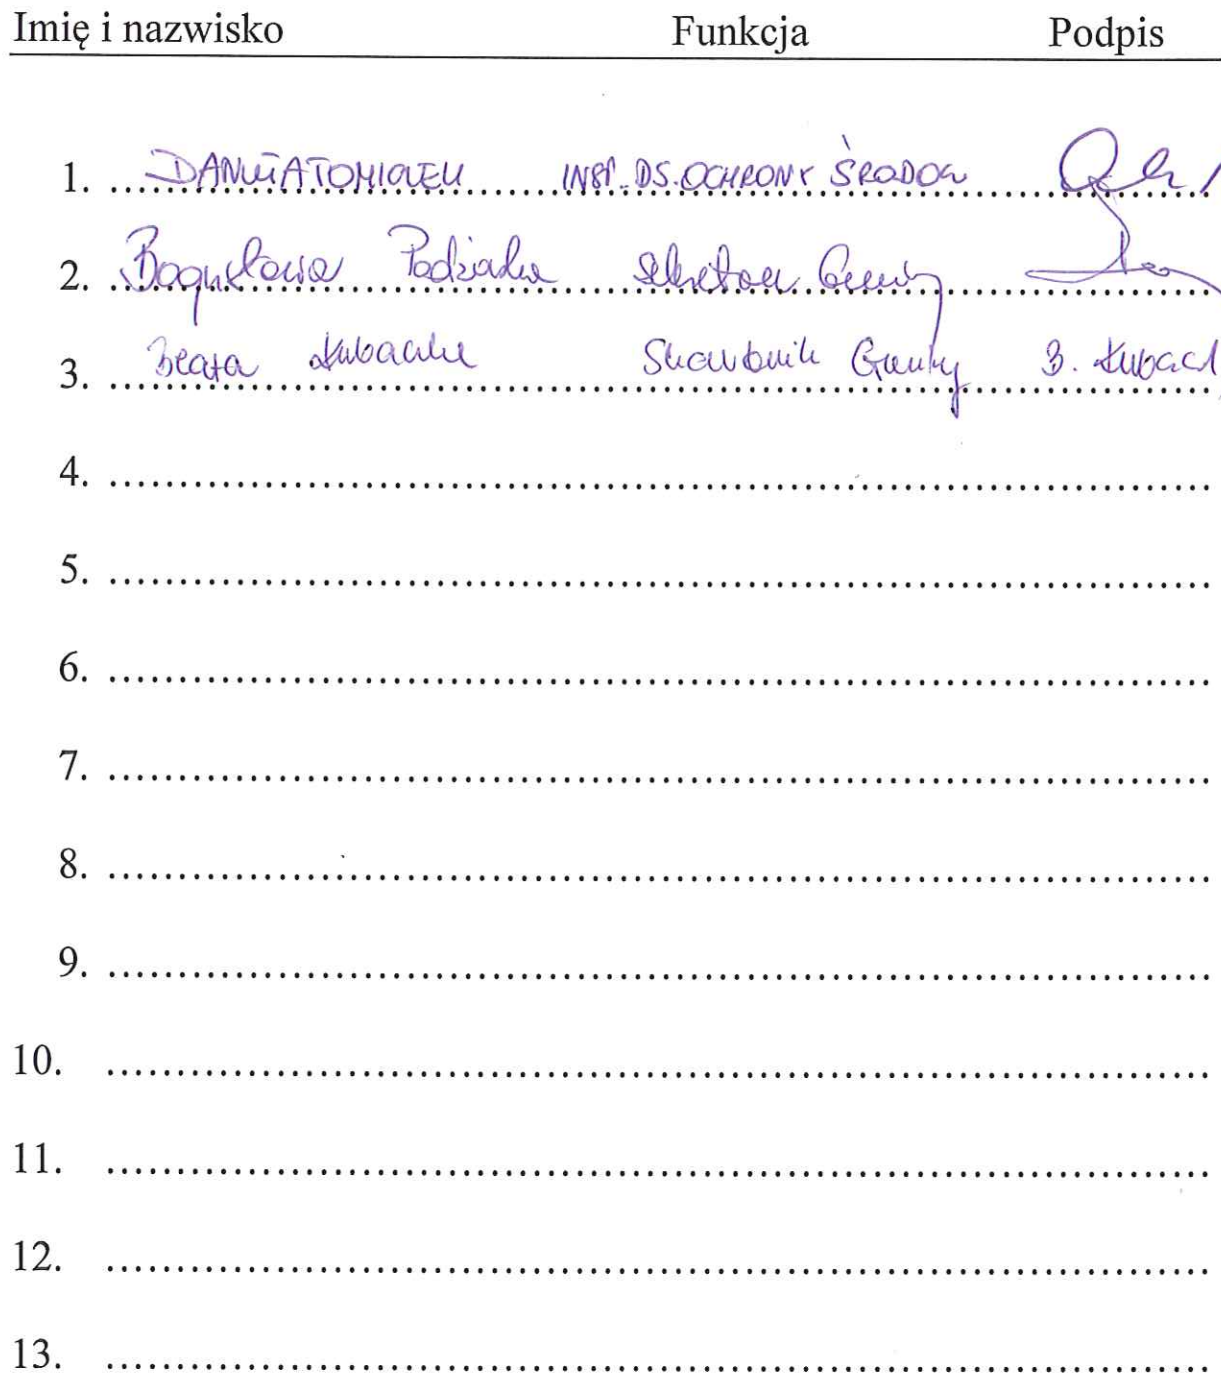 Imię i nazwisko Funkcja Podpis
1. INSP. DS. OCHRONY ŚRODOW
2. Bogusława Sekretarz Gminy
3. Beata Kubacka Skarbnik Gminy B. Kuback
4.
5.
6.
7.
8.
9.
10.
11.
12.
13.